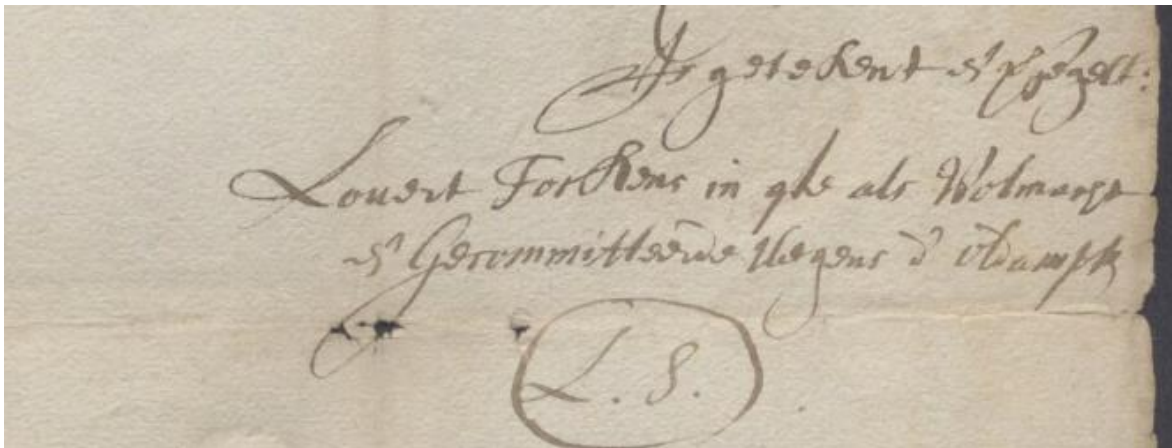 Is getekent en gesegelt:
Louert Fockens in qlte als Volmacht
en Gecommitteerde wegens d' oldampte
L. S.